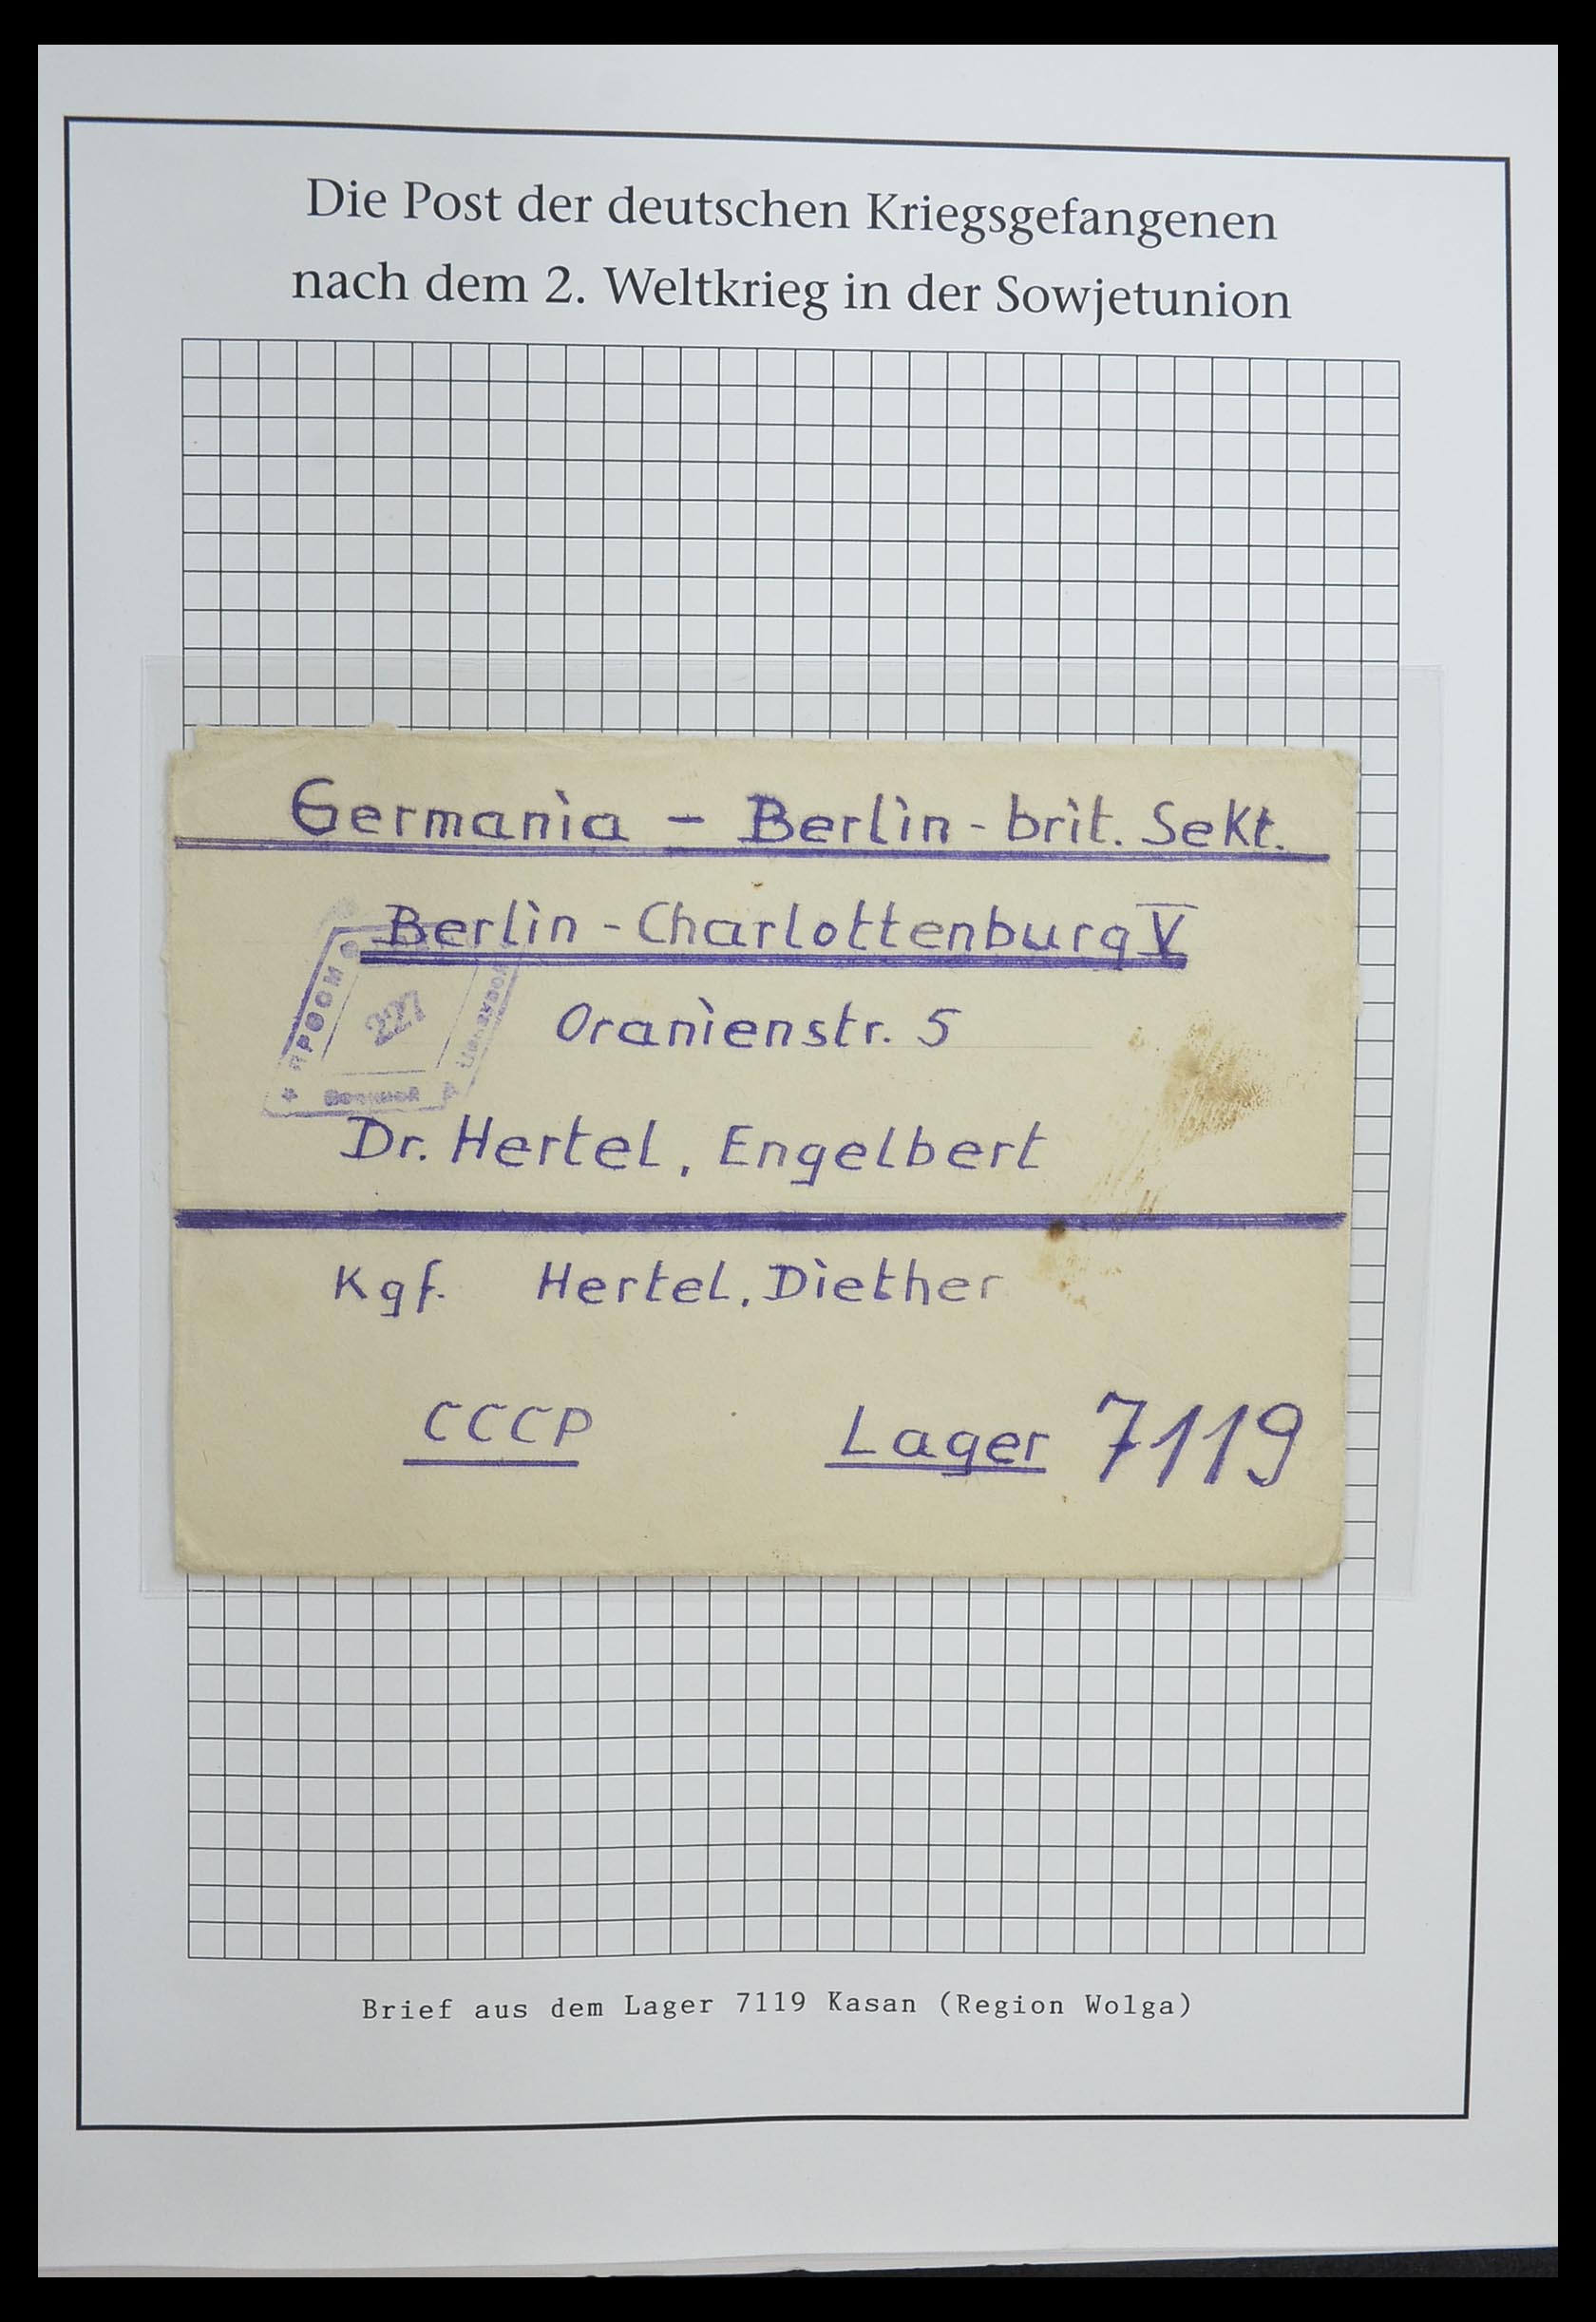 Die Post der deutschen Kriegsgefangenen
nach dem 2. Weltkrieg in der Sowjetunion
Germania - Berlin - brit. Sekt.
Berlin - Charlottenburg V
Oranienstr. 5
227
Dr. Hertel, Engelbert
Kgf. Hertel, Diether
CCCP Lager 7119
Brief aus dem Lager 7119 Kasan (Region Wolga)